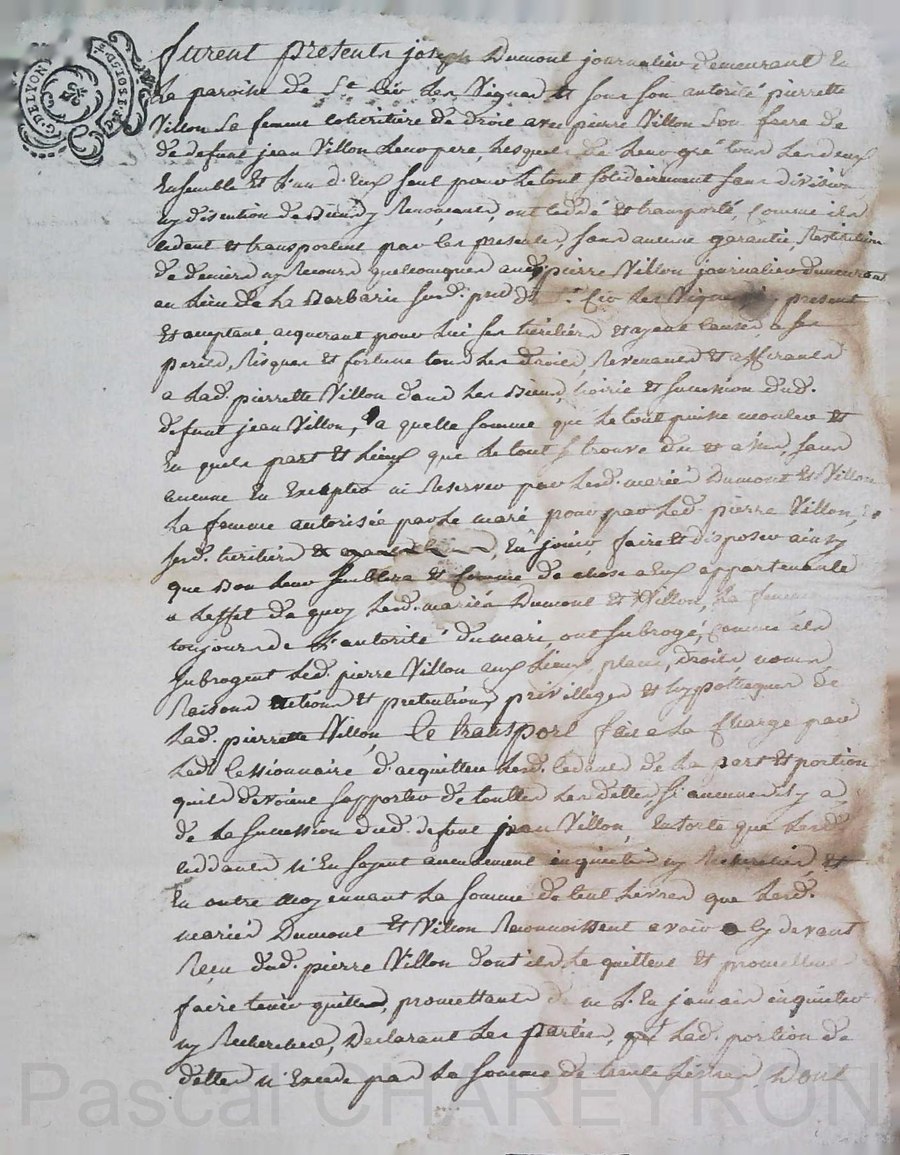 G. DE LYON
2. SOLS 8. D.
furent presents joseph Dumont journalier demeurant En
La paroisse de St Cir les Vignes et sous son autorité pierrette
Villon Sa femme coheritiere de droit avec pierre Villon Son frere de
de defunt jean Villon Leur pere, Lesquels De Leur gré tous Les deux
Ensemble Et L'un d'Eux seul pour Le tout solidairement sans division
ny discution de Biens y Renonceants, ont ceddé et transporté, Comme ils
cedent et transportent par les presentes, sans aucune garantie, Restitution
de deniers ny Recours quelconques aud. pierre Villon journalier demeurant
au Lieu de La Barbarie surd. St Cir Les Vignes présent
Et acceptant acquerant pour Lui ses heritiers et ayent causes, a ses
perils, Risques et fortune tous Les droits, Revenants et affirants
a Lad. pierrette Villon dans Les Biens, hoirie et succession dud.
defunt jean Villon, a quelle somme que Le tout puisse monter et
En quels part Et Lieux que Le tout se trouve du et assis, sans
aucune En Excepter ni Reserver par Lesd. mariés Dumont Et Villon
La femme autorisée par Le mari pour par Led. pierre Villon,
sesd. heritiers, En jouir, faire et disposer ainsy
que Bon Leur semblera et comme de chose a Eux appartenante
a Leffet de quoy Lesd. mariés Dumont et Villon, La femme
toujours de L'autorité du mari, ont subrogé, Comme ils
subrogent Led. pierre Villon aux Lieux, place, droits, noms,
Raisons actions et pretentions privilleges et hypotheques de
Lad. pierrette Villon, Ce transport fait a La Charge par
Led. Cessionnaire d'acquitter Lesd. cedants de La part et portion
quils devoient supporter de touttes Les dettes, si aucunes il y a,
de La sucession dud. defunt jean Villon, Ensorte que Lesd.
ceddants n'En soyent aucunement inquietés ny Recherchés et
En outre Moyennant La somme de cent Livres que Lesd.
mariés Dumont Et Villon Reconnoissent avoir cy devant
Reçu dud. pierre Villon dont ils Le quittent et promettent
faire tenir quitte, promettants de ne L'En jamais inquieter
ny Rechercher, Declarant Les parties, que Lad. portion de
dettes n'Excede pas La somme de trente Livres, Dont
Pascal CHAREYRON